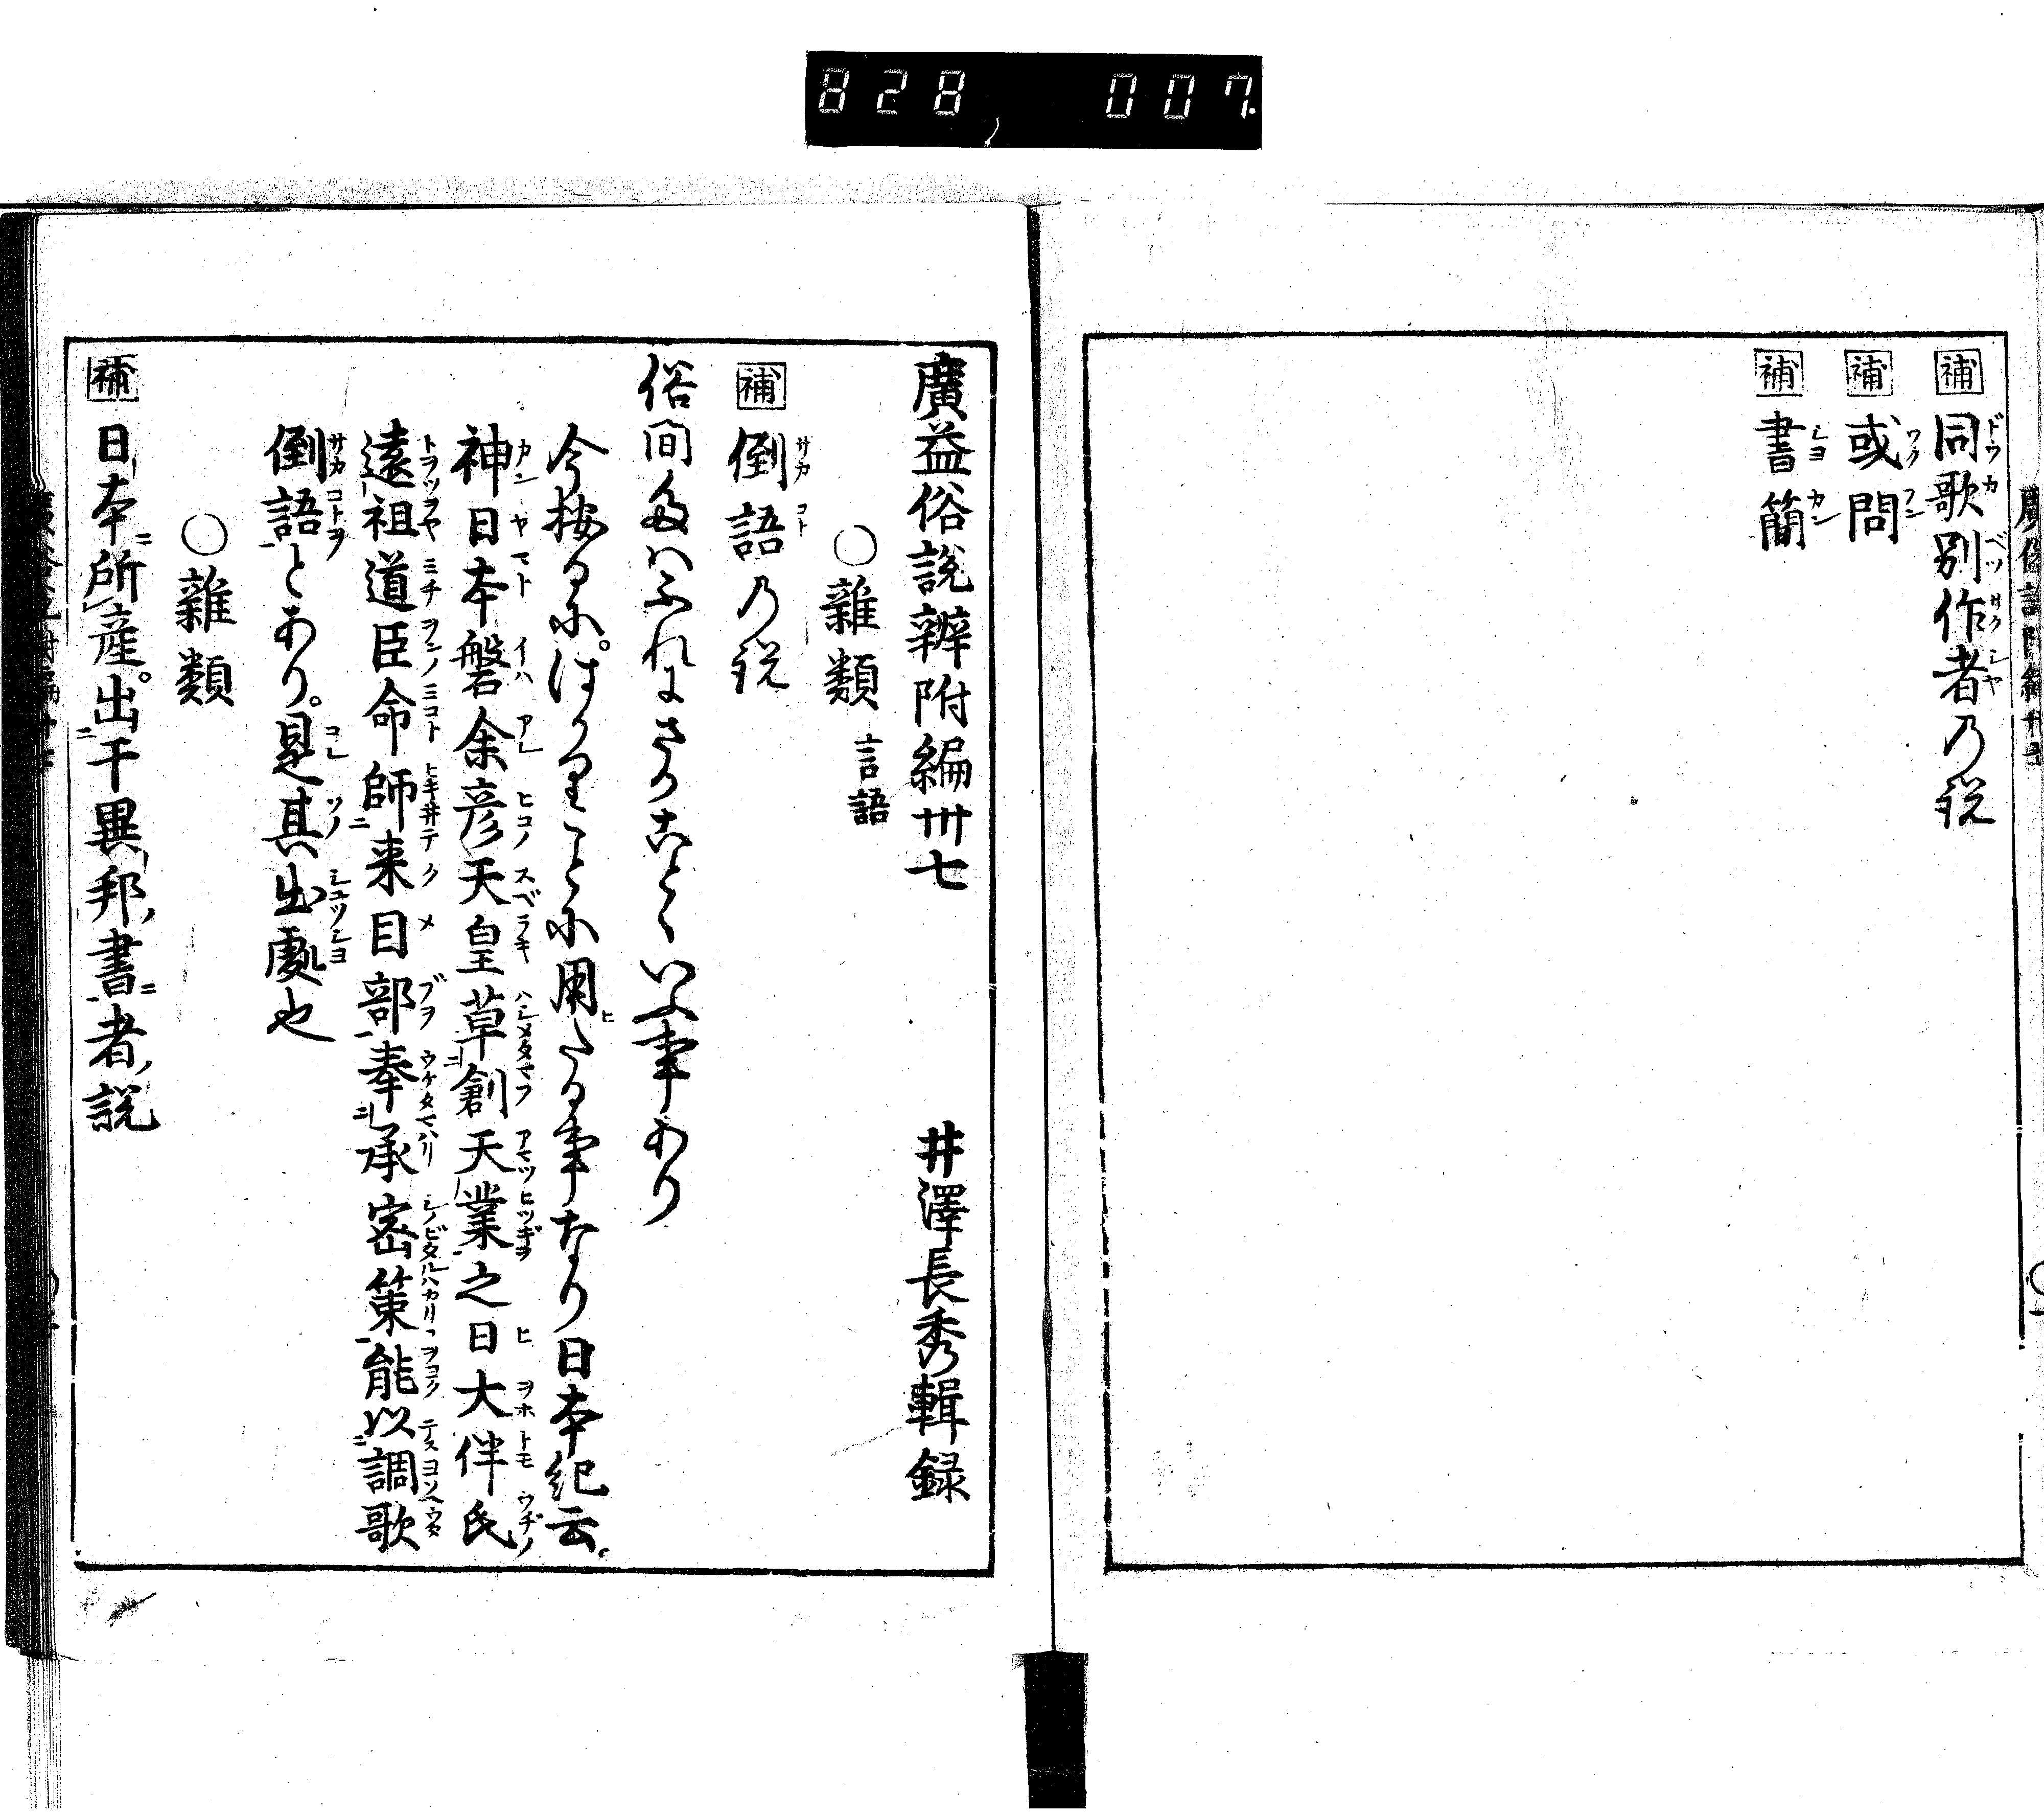 828 007
補 同歌別作者乃説
補 或問
補 書簡
廣益俗説辨附編卅七 井澤長秀輯録
○雜類 言語
補 倒語乃説
俗間多ハふれにさかごとゝいふ事あり
今按るに。はかりことに用ひたる事なり日本紀云。
神日本磐余彦天皇草創天業之日大伴氏
遠祖道臣命師来目部奉承密策能以諷歌
倒語とあり。是其出處也
○雜類
補 日本所産。出于異邦書者説